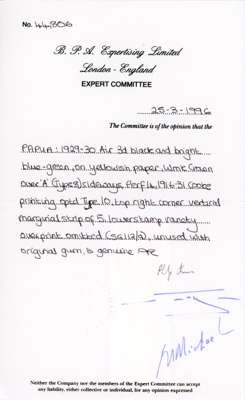 No. 44,806
B. P. A. Expertising Limited
London - England
EXPERT COMMITTEE
25-3-1996
The Committee is of the opinion that the
PAPUA: 1929-30 Air 3d black and bright
blue-green, on yellowish paper, Wmk Crown
over 'A' (Type 8) sideways, Perf 14, 1916-31 Cooke
printing optd Type 10, top right corner vertical
marginal strip of 5, lower stamp variety
overprint omitted (SG 113/a), unused with
original gum, is genuine
Neither the Company nor the members of the Expert Committee can accept
any liability, either collective or individual, for any opinion expressed